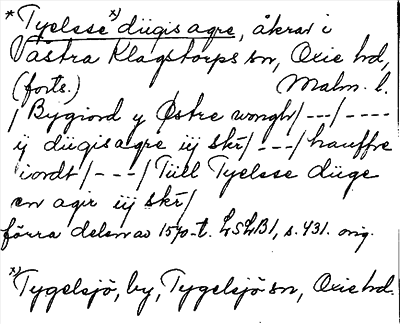 *Tyelsse ˣ⁾ diigis agre, åkrar i
Västra Klagstorps sn, Oxie hd,
(forts.) Malm. l.
/ Bygiord y Østre wongh/---/----
ij diigis agre iij skr/---/hauffre
iordt/---/Tüll Tyelsse diige
en agir iij skr/
förra delen av 1570-t. LSLB1, s. 431. orig.
ˣ⁾Tygelsjö, by, Tygelsjö sn, Oxie hd.